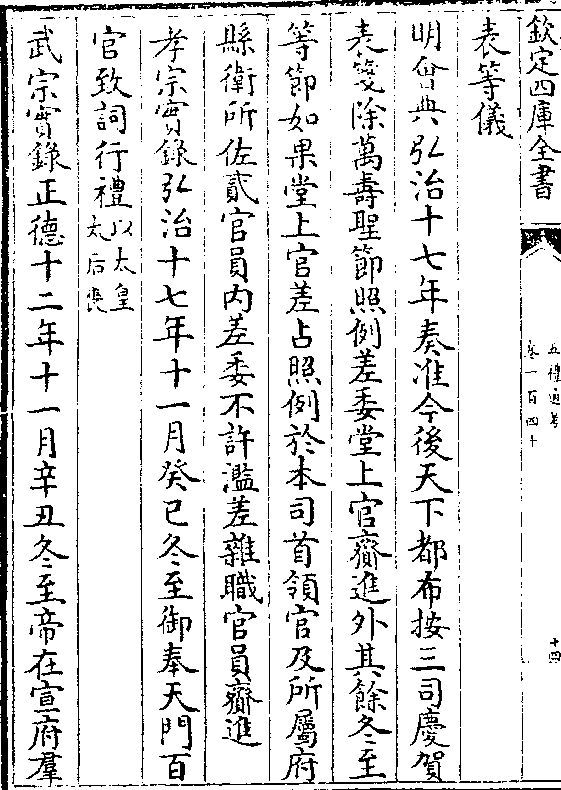 欽定四庫全書
五禮通考
卷一百四十
十四
表等儀
明會典弘治十七年奏准今後天下都布按三司慶賀
表箋除萬壽聖節照例差委堂上官齎進外其餘冬至
等節如果堂上官差占照例於本司首領官及所屬府
縣衛所佐貳官員内差委不許濫差雜職官員齎進
孝宗實錄弘治十七年十一月癸巳冬至御奉天門百
官致詞行禮以太皇太后喪
武宗實錄正德十二年十一月辛丑冬至帝在宣府羣